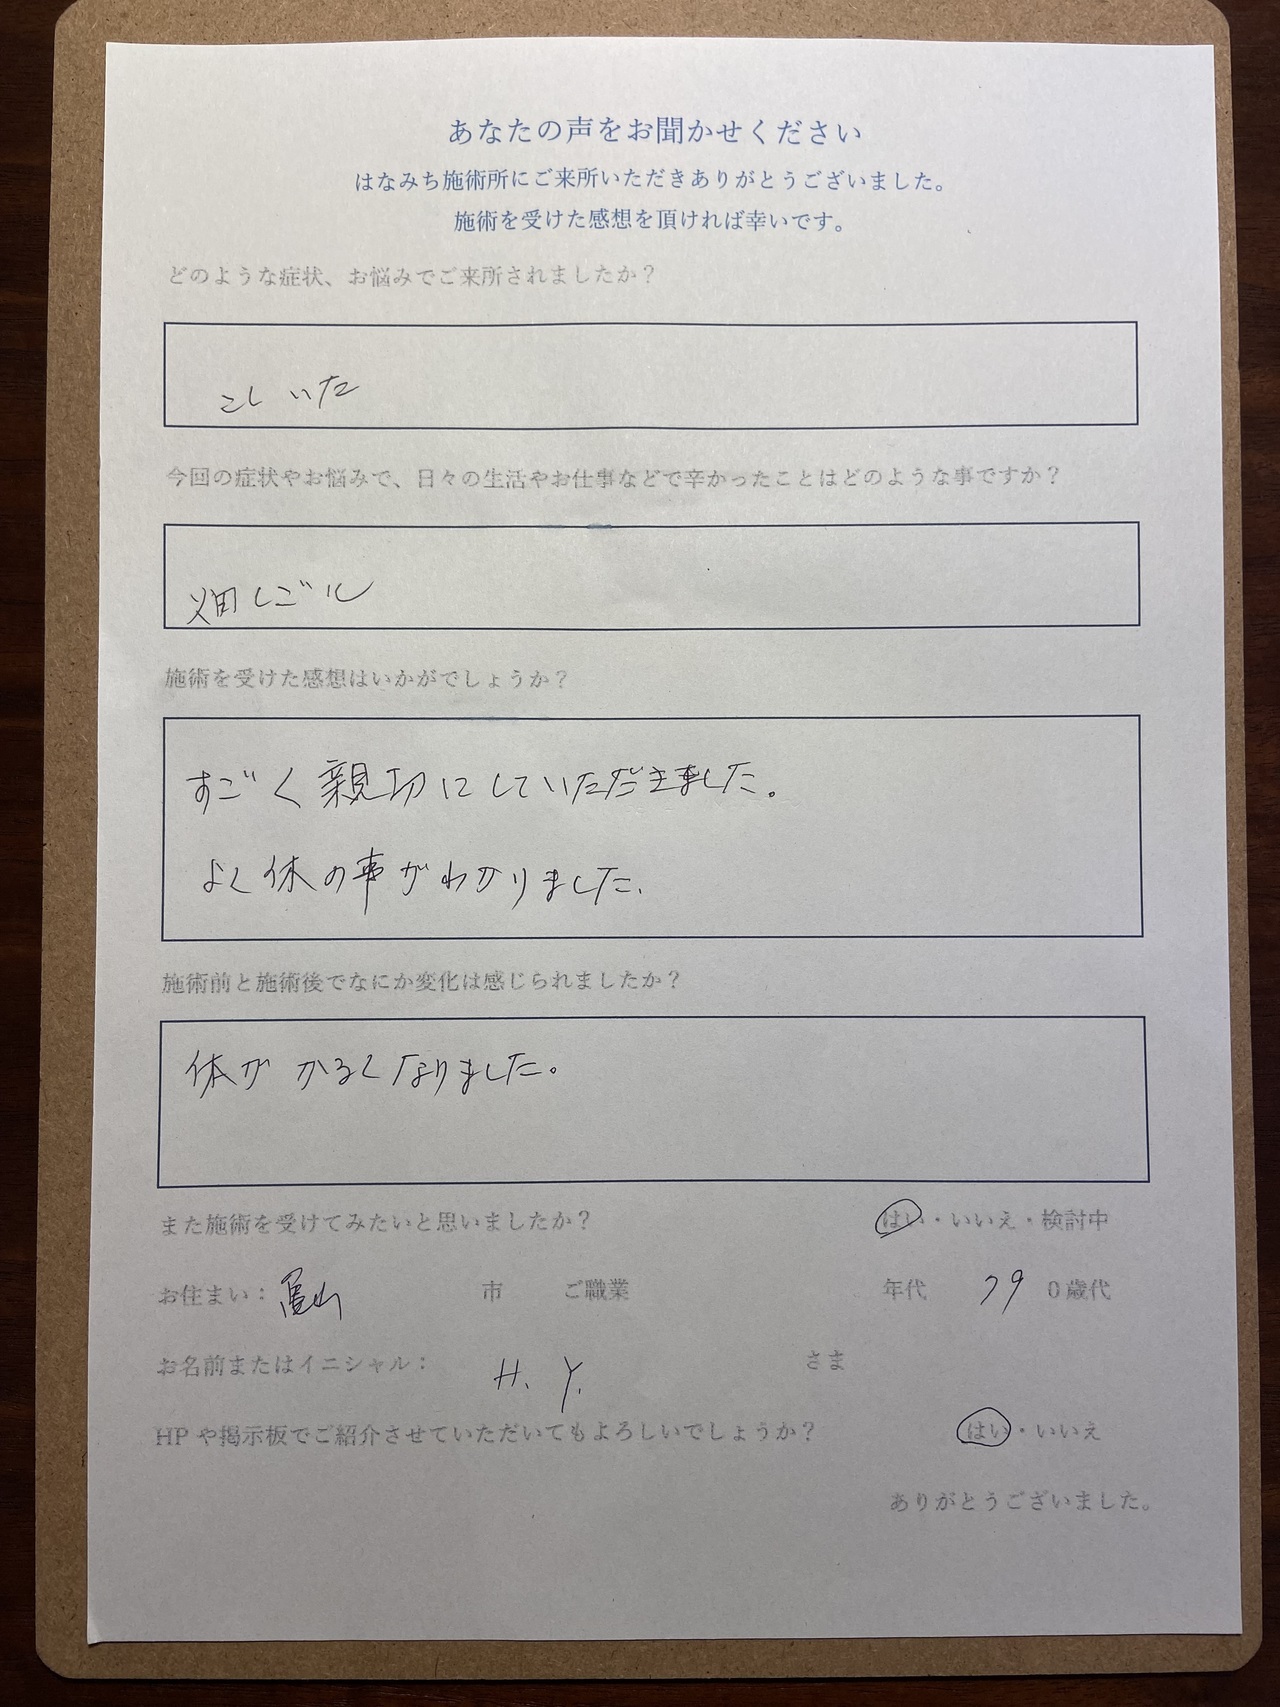 あなたの声をお聞かせください
はなみち施術所にご来所いただきありがとうございました。
施術を受けた感想を頂ければ幸いです。
どのような症状、お悩みでご来所されましたか？
こしいた
今回の症状やお悩みで、日々の生活やお仕事などで辛かったことはどのような事ですか？
畑しごと
施術を受けた感想はいかがでしょうか？
すごく親切にしていただきました。
よく体の事がわかりました。
施術前と施術後でなにか変化は感じられましたか？
体がかるくなりました。
また施術を受けてみたいと思いましたか？ はい・いいえ・検討中
お住まい： 市 ご職業 年代 79 0歳代
お名前またはイニシャル： H. Y. さま
HPや掲示板でご紹介させていただいてもよろしいでしょうか？ はい・いいえ
ありがとうございました。